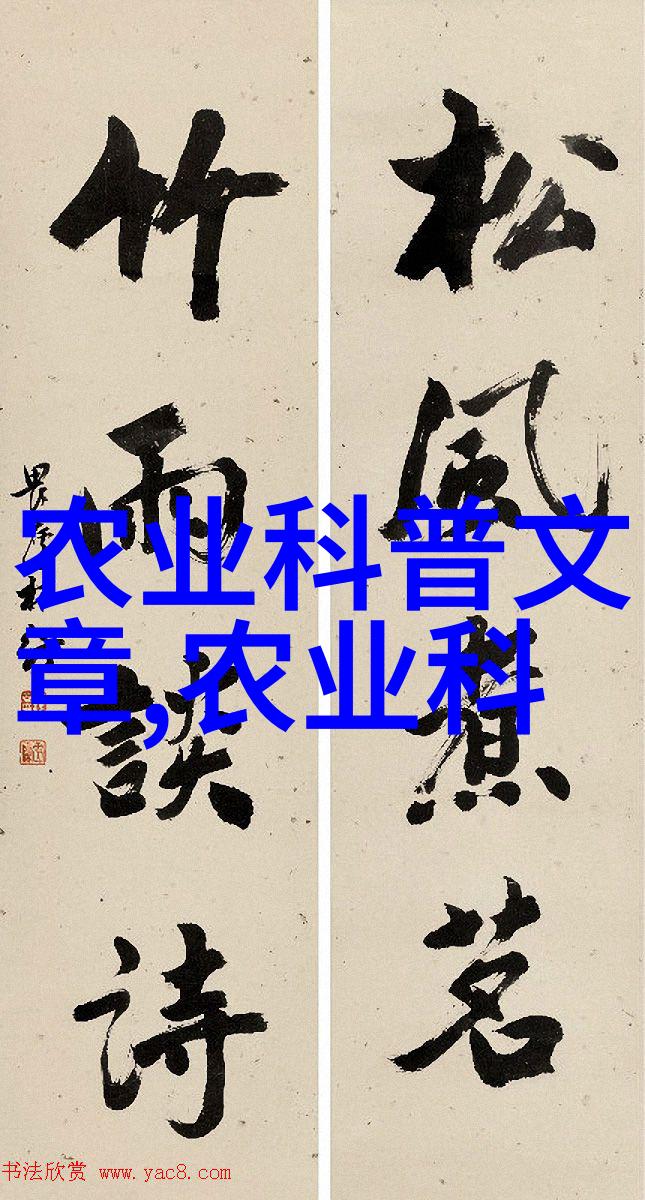 松風煮茗
竹雨談詩
農業科普文
章,农业科
书法欣赏 www.yac8.com